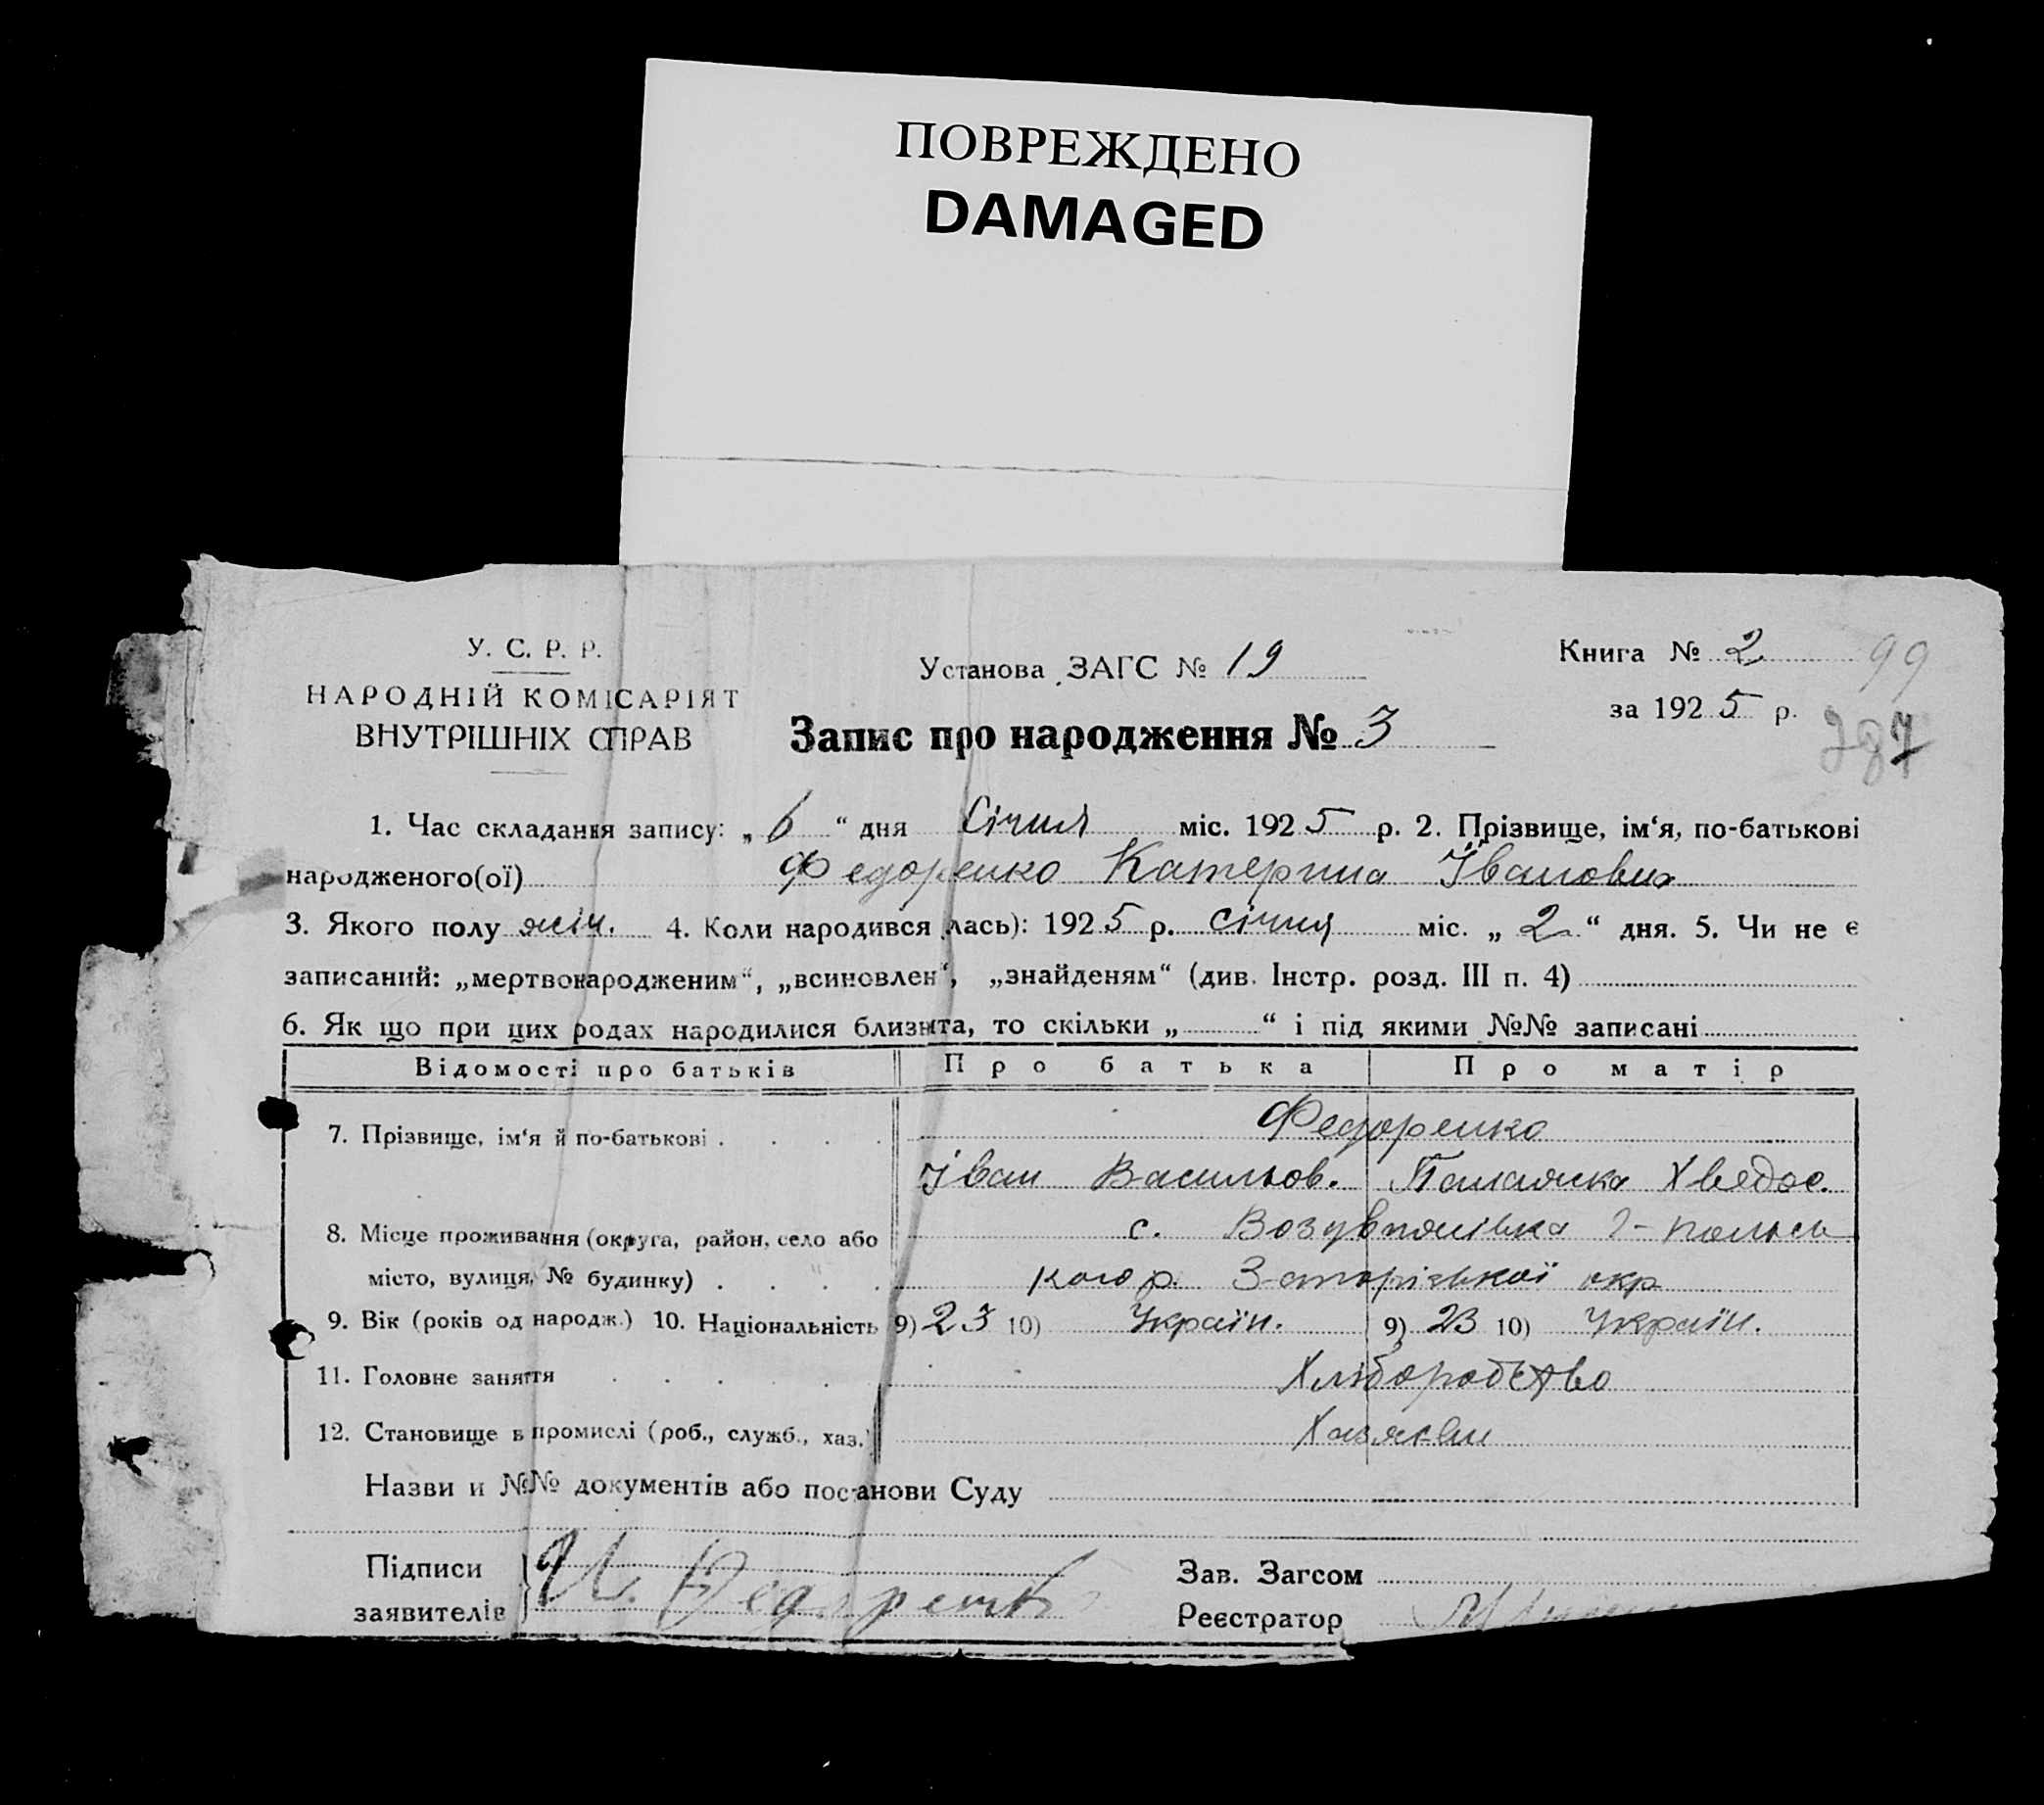 ПОВРЕЖДЕНО
DAMAGED
У. С. Р. Р.
НАРОДНІЙ КОМІСАРІЯТ
ВНУТРІШНІХ СПРАВ
Установа ЗАГС № 19
Запис про народження № 3
Книга № 2 99
за 1925 р.
1. Час складання запису: „6“ дня Січня міс. 1925 р. 2. Прізвище, ім‘я, по-батькові
народженого(ої) Федоренко Катерина Івановна
3. Якого полу жін. 4. Коли народився лась): 1925 р. січня міс. „2“ дня. 5. Чи не є
записаний: „мертвонародженим“, „всиновлен“, „знайденям“ (див. Інстр. розд. III п. 4)
6. Як що при цих родах народилися близнята, то скільки „ “ і під якими №№ записані
Відомості про батьків Про батька Про матір
7. Прізвище, ім‘я й по-батькові . . . . Федоренко
Іван Васильов. Хведос.
8. Місце проживання (округа, район, село або с.
місто, вулиця, № будинку) . . . . кого р. Запорізької окр
9. Вік (років од народж.) 10. Національність 9) 23 10) Україн. 9) 23 10) Україн.
11. Головне заняття . . . . . Хліборобство
12. Становище в промислі (роб., служб., хаз.)
Назви и №№ документів або постанови Суду
Підписи
заявителів И. Федоренко
Зав. Загсом
Реєстратор